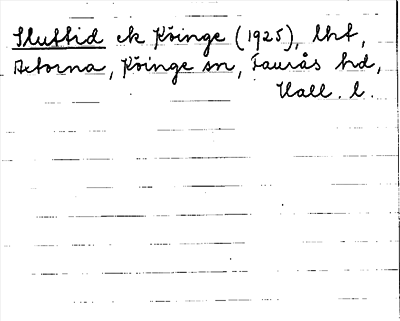 Sluttid ek Köinge (1925), lht,
Aetorna, Köinge sn, Faurås hd,
Hall. l.